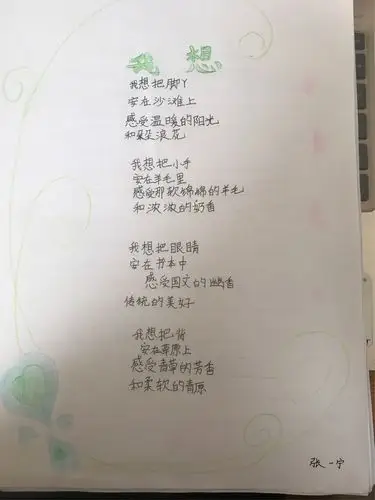 我想
我想把脚丫
安在沙滩上
感受温暖的阳光
和朵朵浪花
我想把小手
安在羊毛里
感受那软绵绵的羊毛
和浓浓的奶香
我想把眼睛
安在书本中
感受国文的幽香
传统的美好
我想把背
安在草原上
感受青草的芳香
和柔软的草原
张一宁